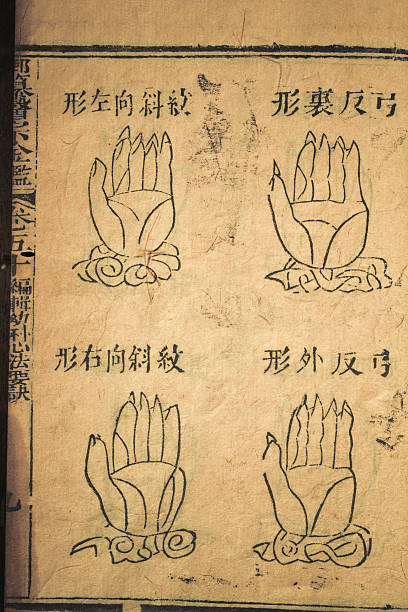 弓反裏形
紋斜向左形
弓反外形
紋斜向右形
醫宗金鑑
卷五十
編輯幼科心法要訣
九